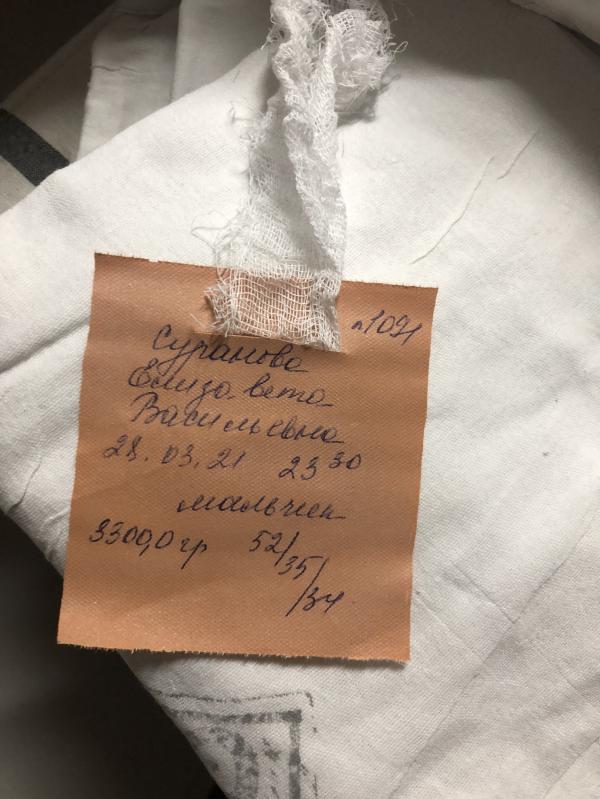 п1091
Суранова
Елизавета
Васильевна
28.03.21 23 30
мальчик
3300,0 гр 52/
35/
/34